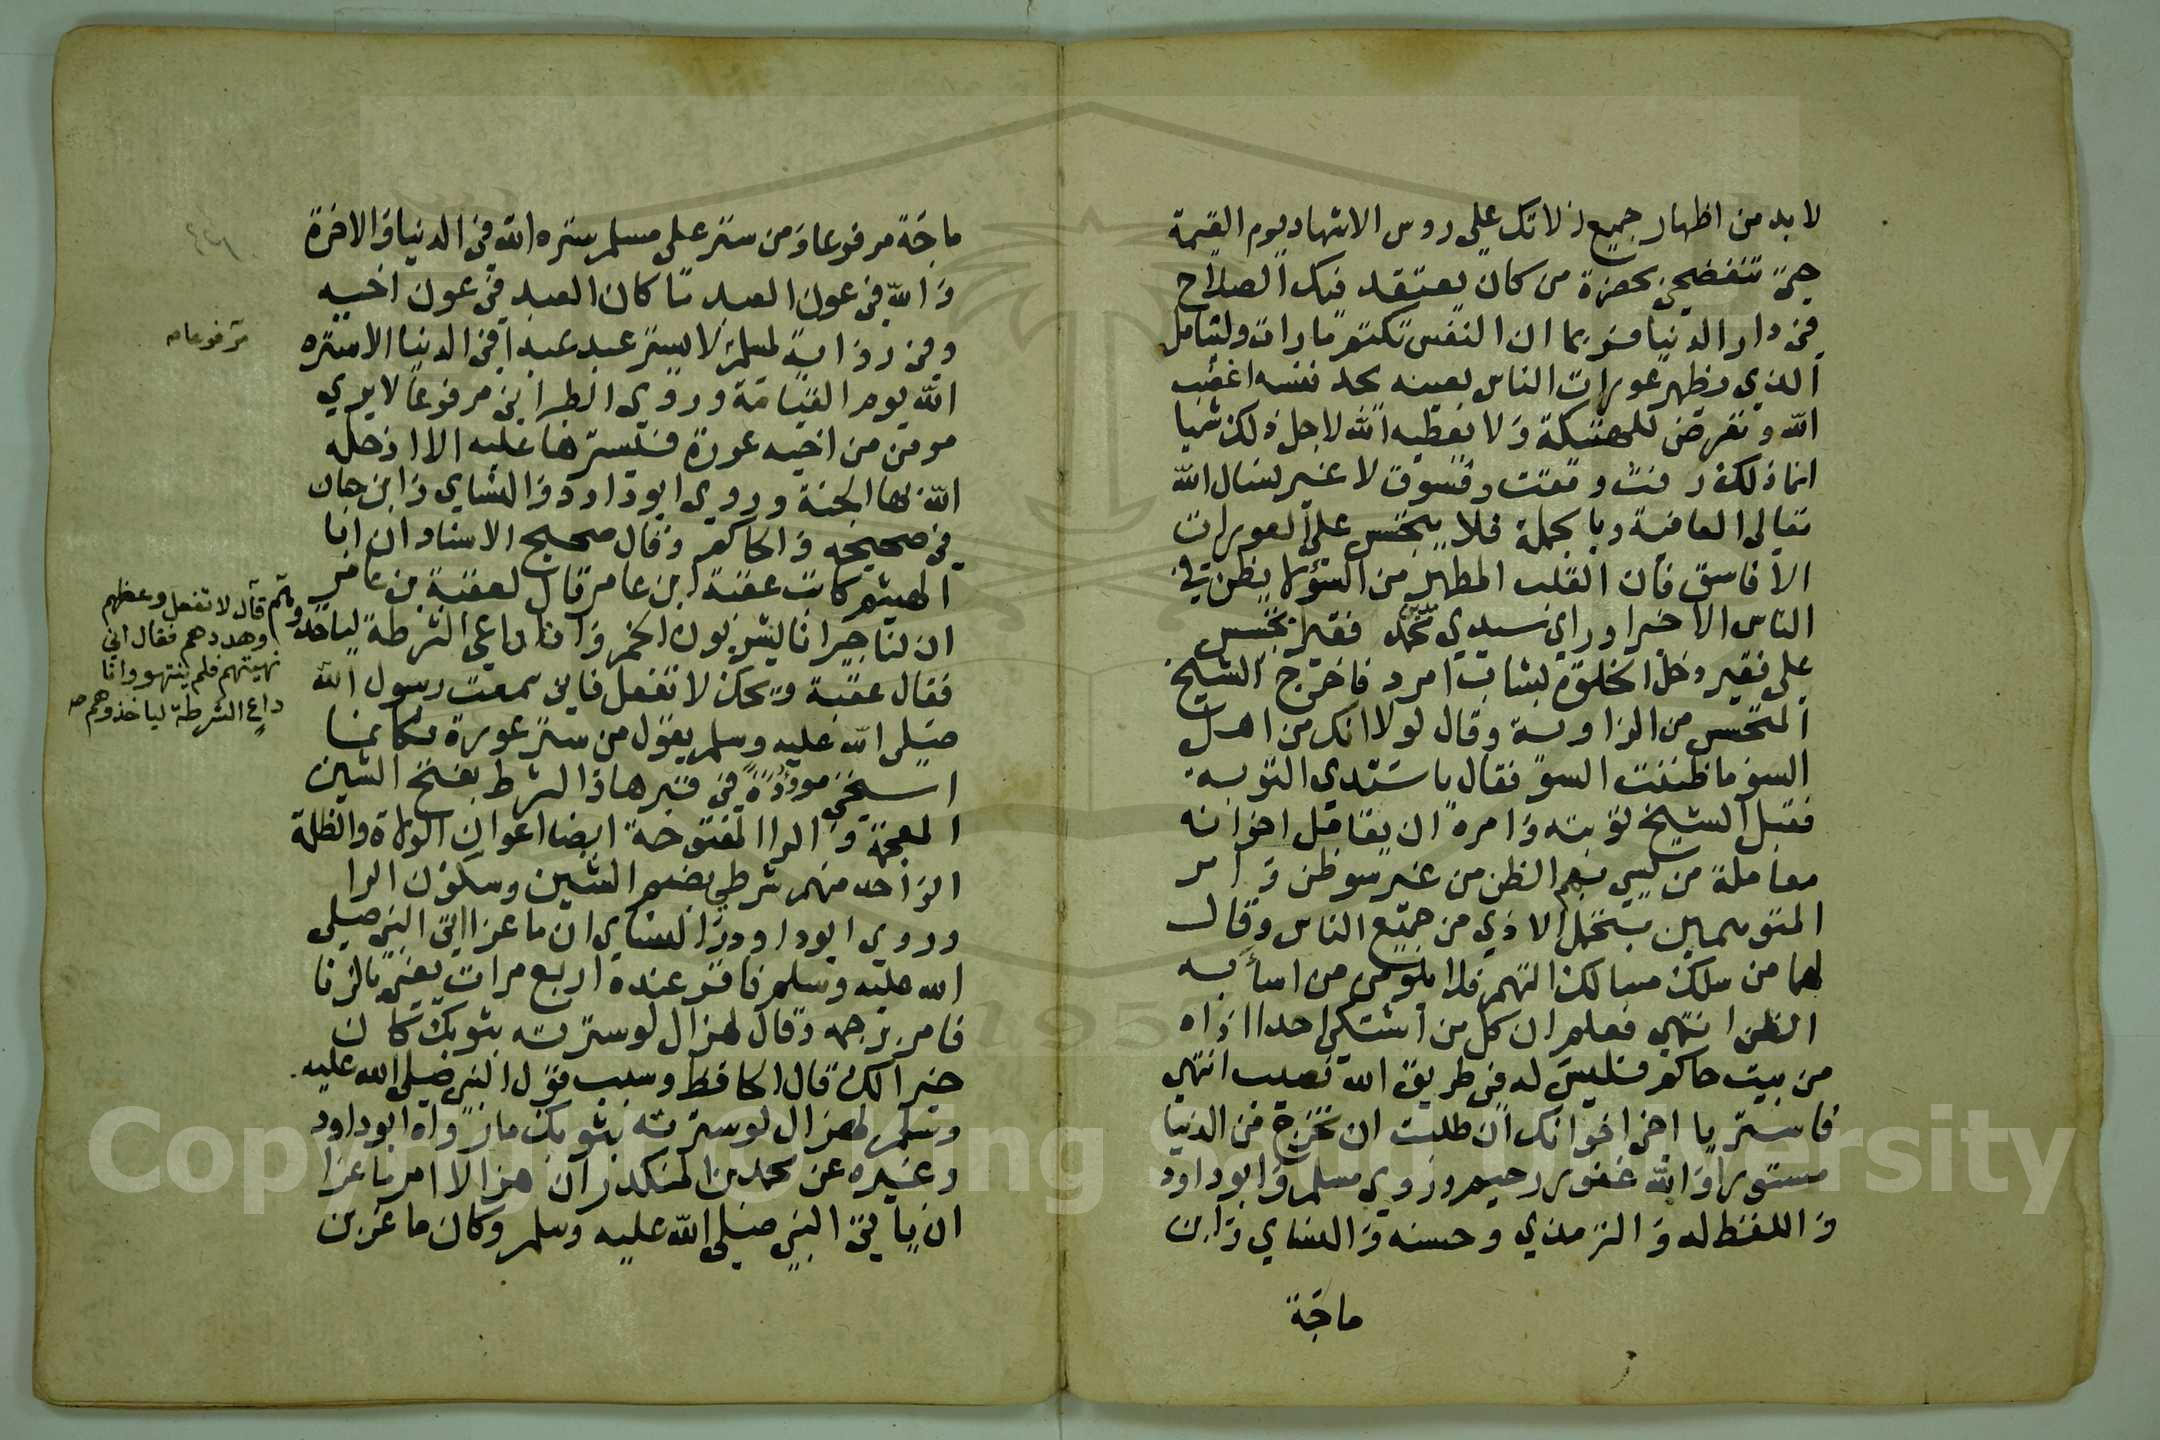 لا بد من اظهار جميع زلاتك على روس الاشهاد يوم القيمة
حتى تنفضحي بحضرة من كان يعتقد فيك الصلاح
في دار الدنيا فربما ان النفس تكتم ما رات وليتامل
الذي يظهر عورات الناس بعينه يجد نفسه اغضب
الله وتعرض للهتيكة ولا يعطيه الله لاجل ذلك شيا
انما ذلك ومقت وفسوق لا غير نسال الله
تعالى العافية وبالجملة فلا يتجسس على العورات
الا فاسق فان القلب المطهر من السؤ لا يظن في
الناس الا خيرا وراي سيدي محمد فقيرا تجسس
على فقير دخل الخلوة بشاب امرد فاخرج الشيخ
المتجسس من الزاوية وقال لولا انك من اهل
السؤ ما ظننت السؤ فقال يا سيدي التوبة
فقبل الشيخ توبته وامره ان يقابل اخوانه
معاملة من ليس بهم الظن من غير سوظن وامر
المتوسمين بتحمل الاذي من جميع الناس وقال
لهما من سلك مسالك التهم فلا يلومن من اسأ به
الظن انتهى فعلم ان كل من اشتكى احدا اذاه
من بيت حاكم فليس له في طريق الله نصيب انتهى
فاستر يا اخي اخوانك ان طلبت ان تخرج من الدنيا
مستورا والله غفور رحيم وروي مسلم وابوداود
واللفظ له والترمذي وحسنه والنساي وابن
ماجة
ماجة مرفوعا ومن ستر على مسلم ستره الله في الدنيا والاخرة
والله في عون العبد ما كان العبد في عون اخيه
وفي رواية لمسلم لا يستر عبد عبدا في الدنيا الا ستره
الله يوم القيامة وروي الطبراني مرفوعا لا يري
مومن من اخيه عورة فيسترها عليه الا ادخله
الله بها الجنة وروي ابوداود والنساي وابن حبان
في صحيحه والحاكم وقال صحيح الاسناد ان ابا
الهيثم كاتب عقبة ابن عامر قال لعقبة بن عامر
ان لنا جيرانا يشربون الخمر وانا داعي الشرطة لياخذوهم
فقال عقبة ويحك لا تفعل فاني سمعت رسول الله
صلى الله عليه وسلم يقول من ستر عورة فكانما
استحيى موؤدة في قبرها والشرط بفتح الشين
المعجمة والرا المفتوحة ايضا اعوان الولاة والظلمة
الواحد منهم شرطي بضم الشين وسكون الرا
وروي ابوداود والنساي ان ماعزا اتى النبي صلى
الله عليه وسلم فاقر عنده اربع مرات يعني بالزنا
فامر برجمه وقال لهزال لو سترته بثوبك كان
خيرا لك قال الحافظ وسبب قول النبي صلى الله عليه
وسلم لهزال لو سترته بثوبك ما رواه ابوداود
وغيره عن محمد بن المنكدر ان هزالا امر ماعزا
ان ياتي النبي صلى الله عليه وسلم وكان ماعز بن
مرفوعا صه
قال لا تفعل وعظهم
وهددهم فقال اني
نهيتهم فلم ينتهوا وانا
داع الشرطة لياخذوهم صه
Copyright © King Saud University
1957